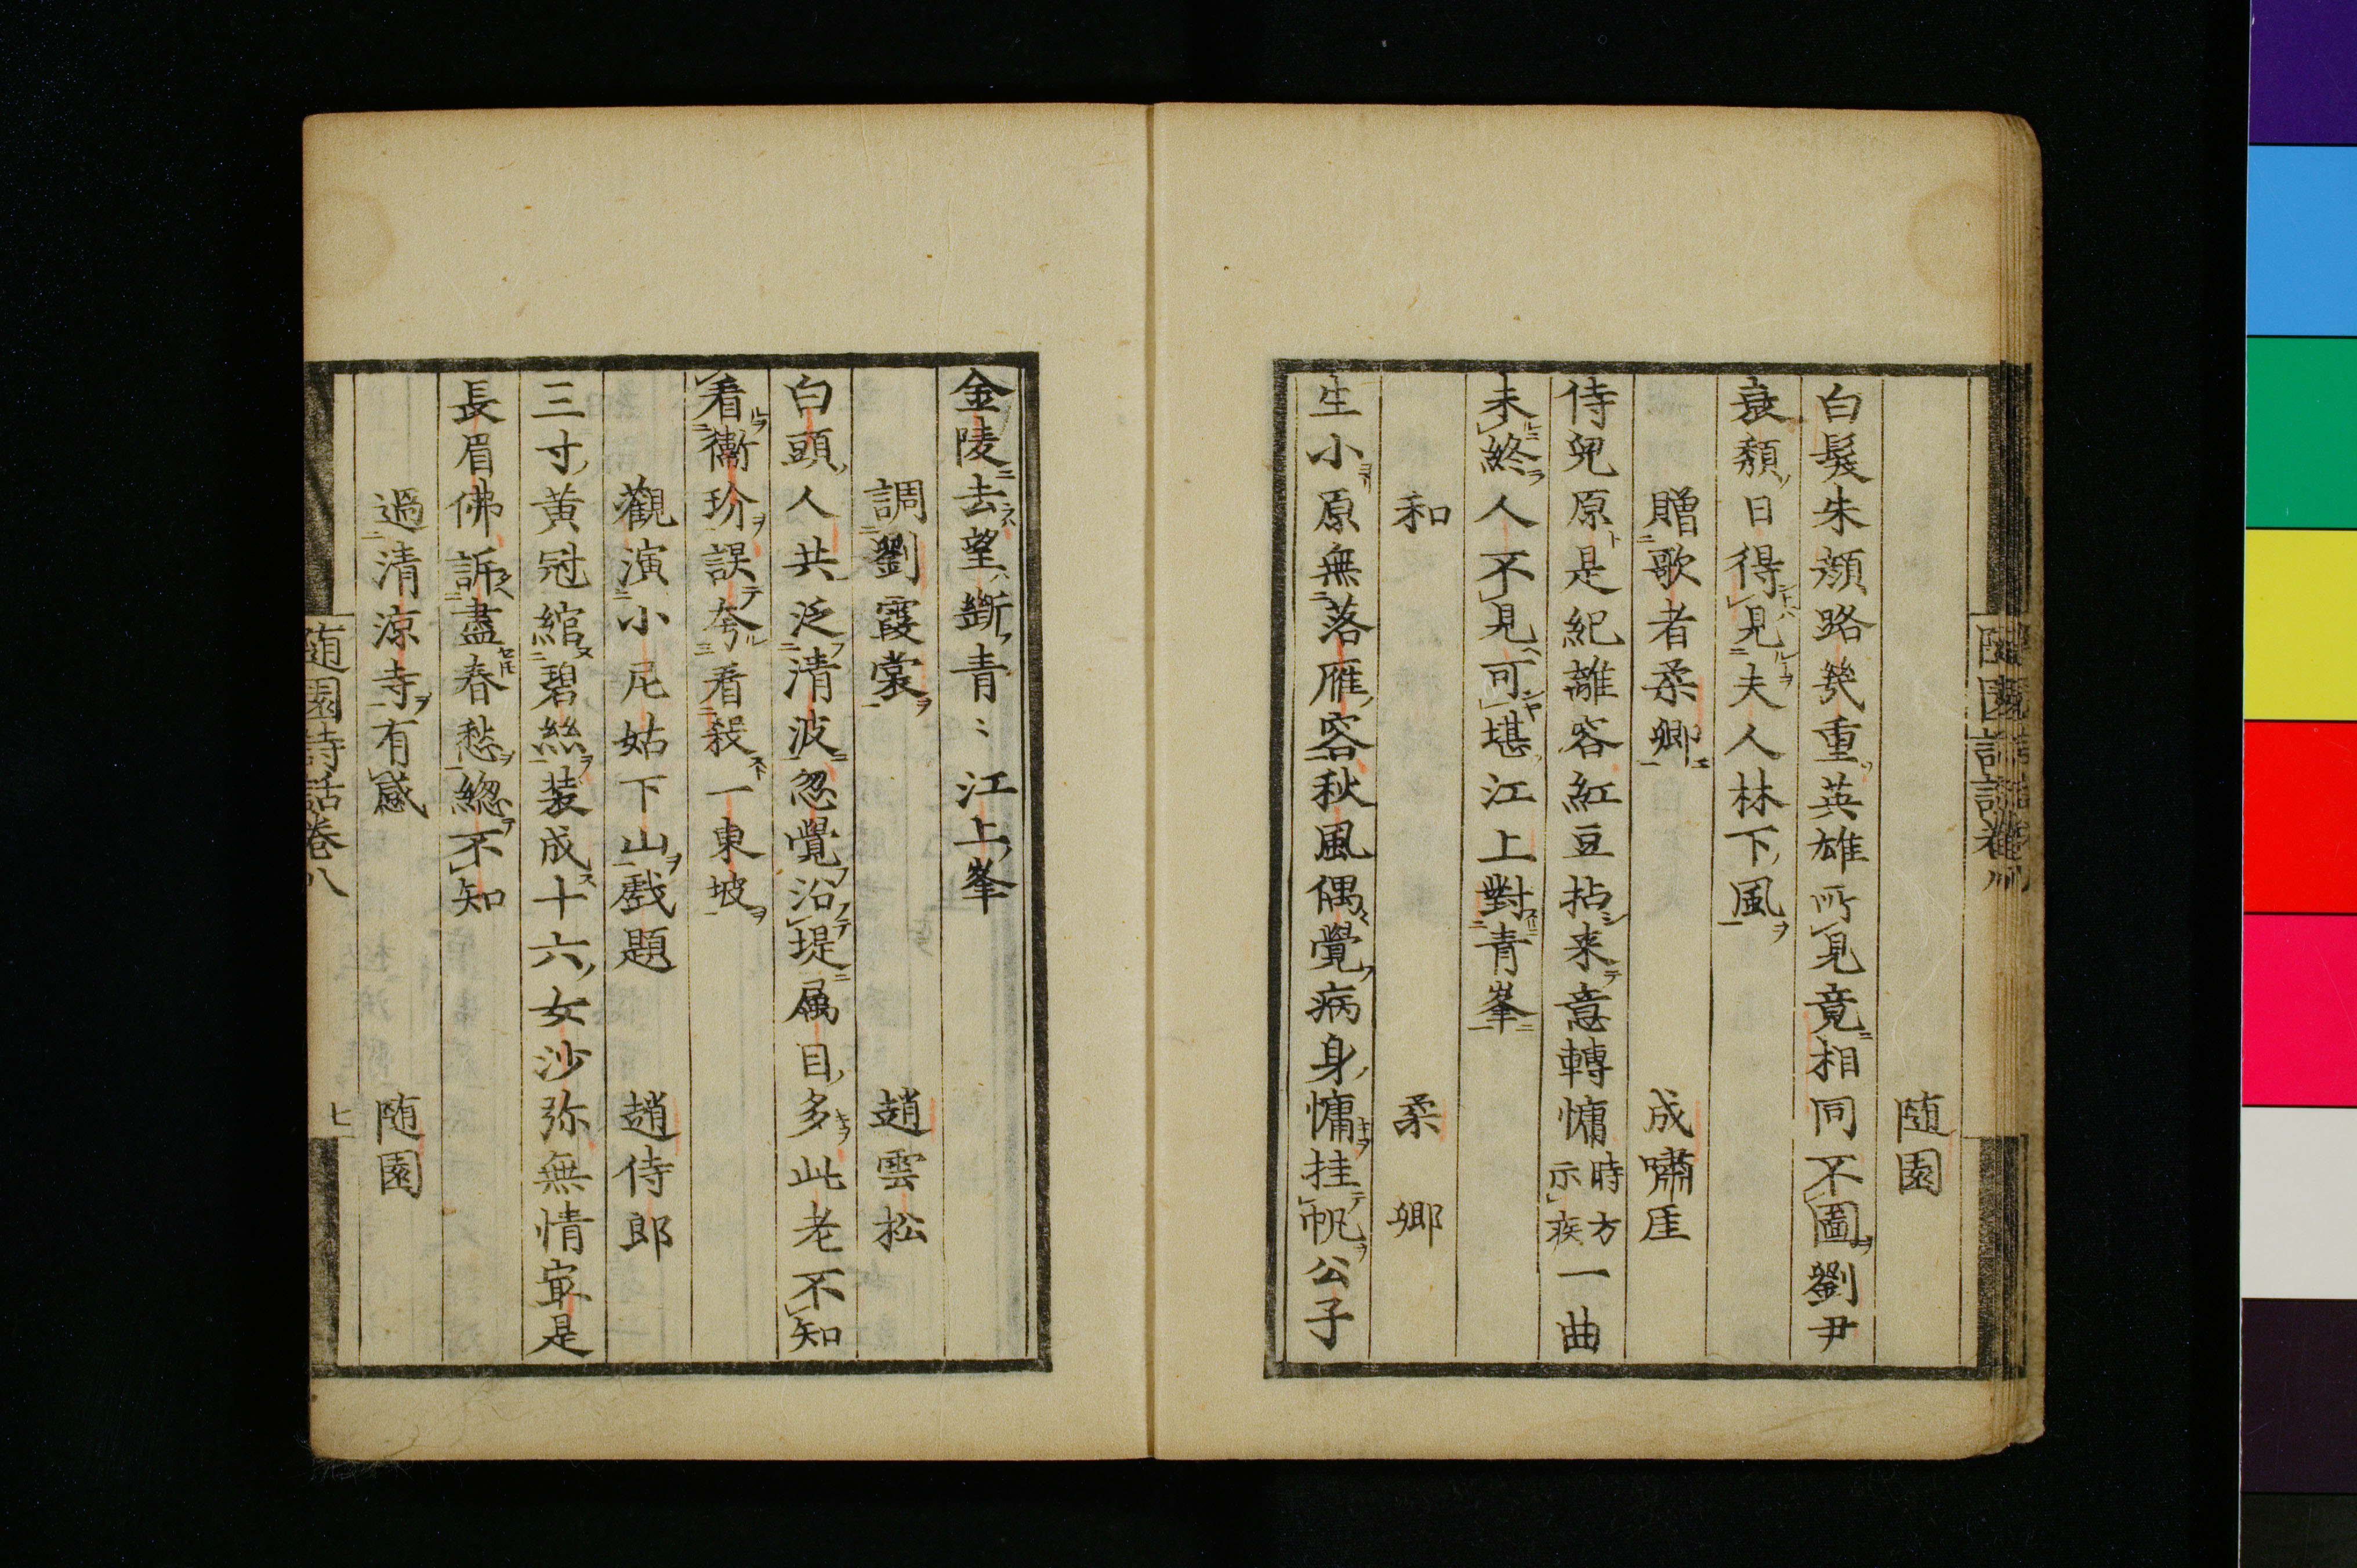 随園
白髮朱顔路幾重英雄所見竟相同不圖劉尹
衰頽日得見夫人林下風
贈歌者柔卿 成嘯厓
侍兒原是紀離容紅豆拈来意轉慵時方示疾一曲
未終人不見可堪江上對青峯
和 柔卿
生小原無落雁容秋風偶覺病身慵挂帆公子
金陵去望斷青〻江上峯
調劉霞裳 趙雲松
白頭人共泛清波忽覺沿堤属目多此老不知
看衞玠誤夸看殺一東坡
觀演小尼姑下山戲題 趙侍郎
三寸黃冠綰碧絲装成十六女沙弥無情㝡是
長眉佛訴盡春愁緫不知
過清涼寺有感 随園
随園詩話卷八 七